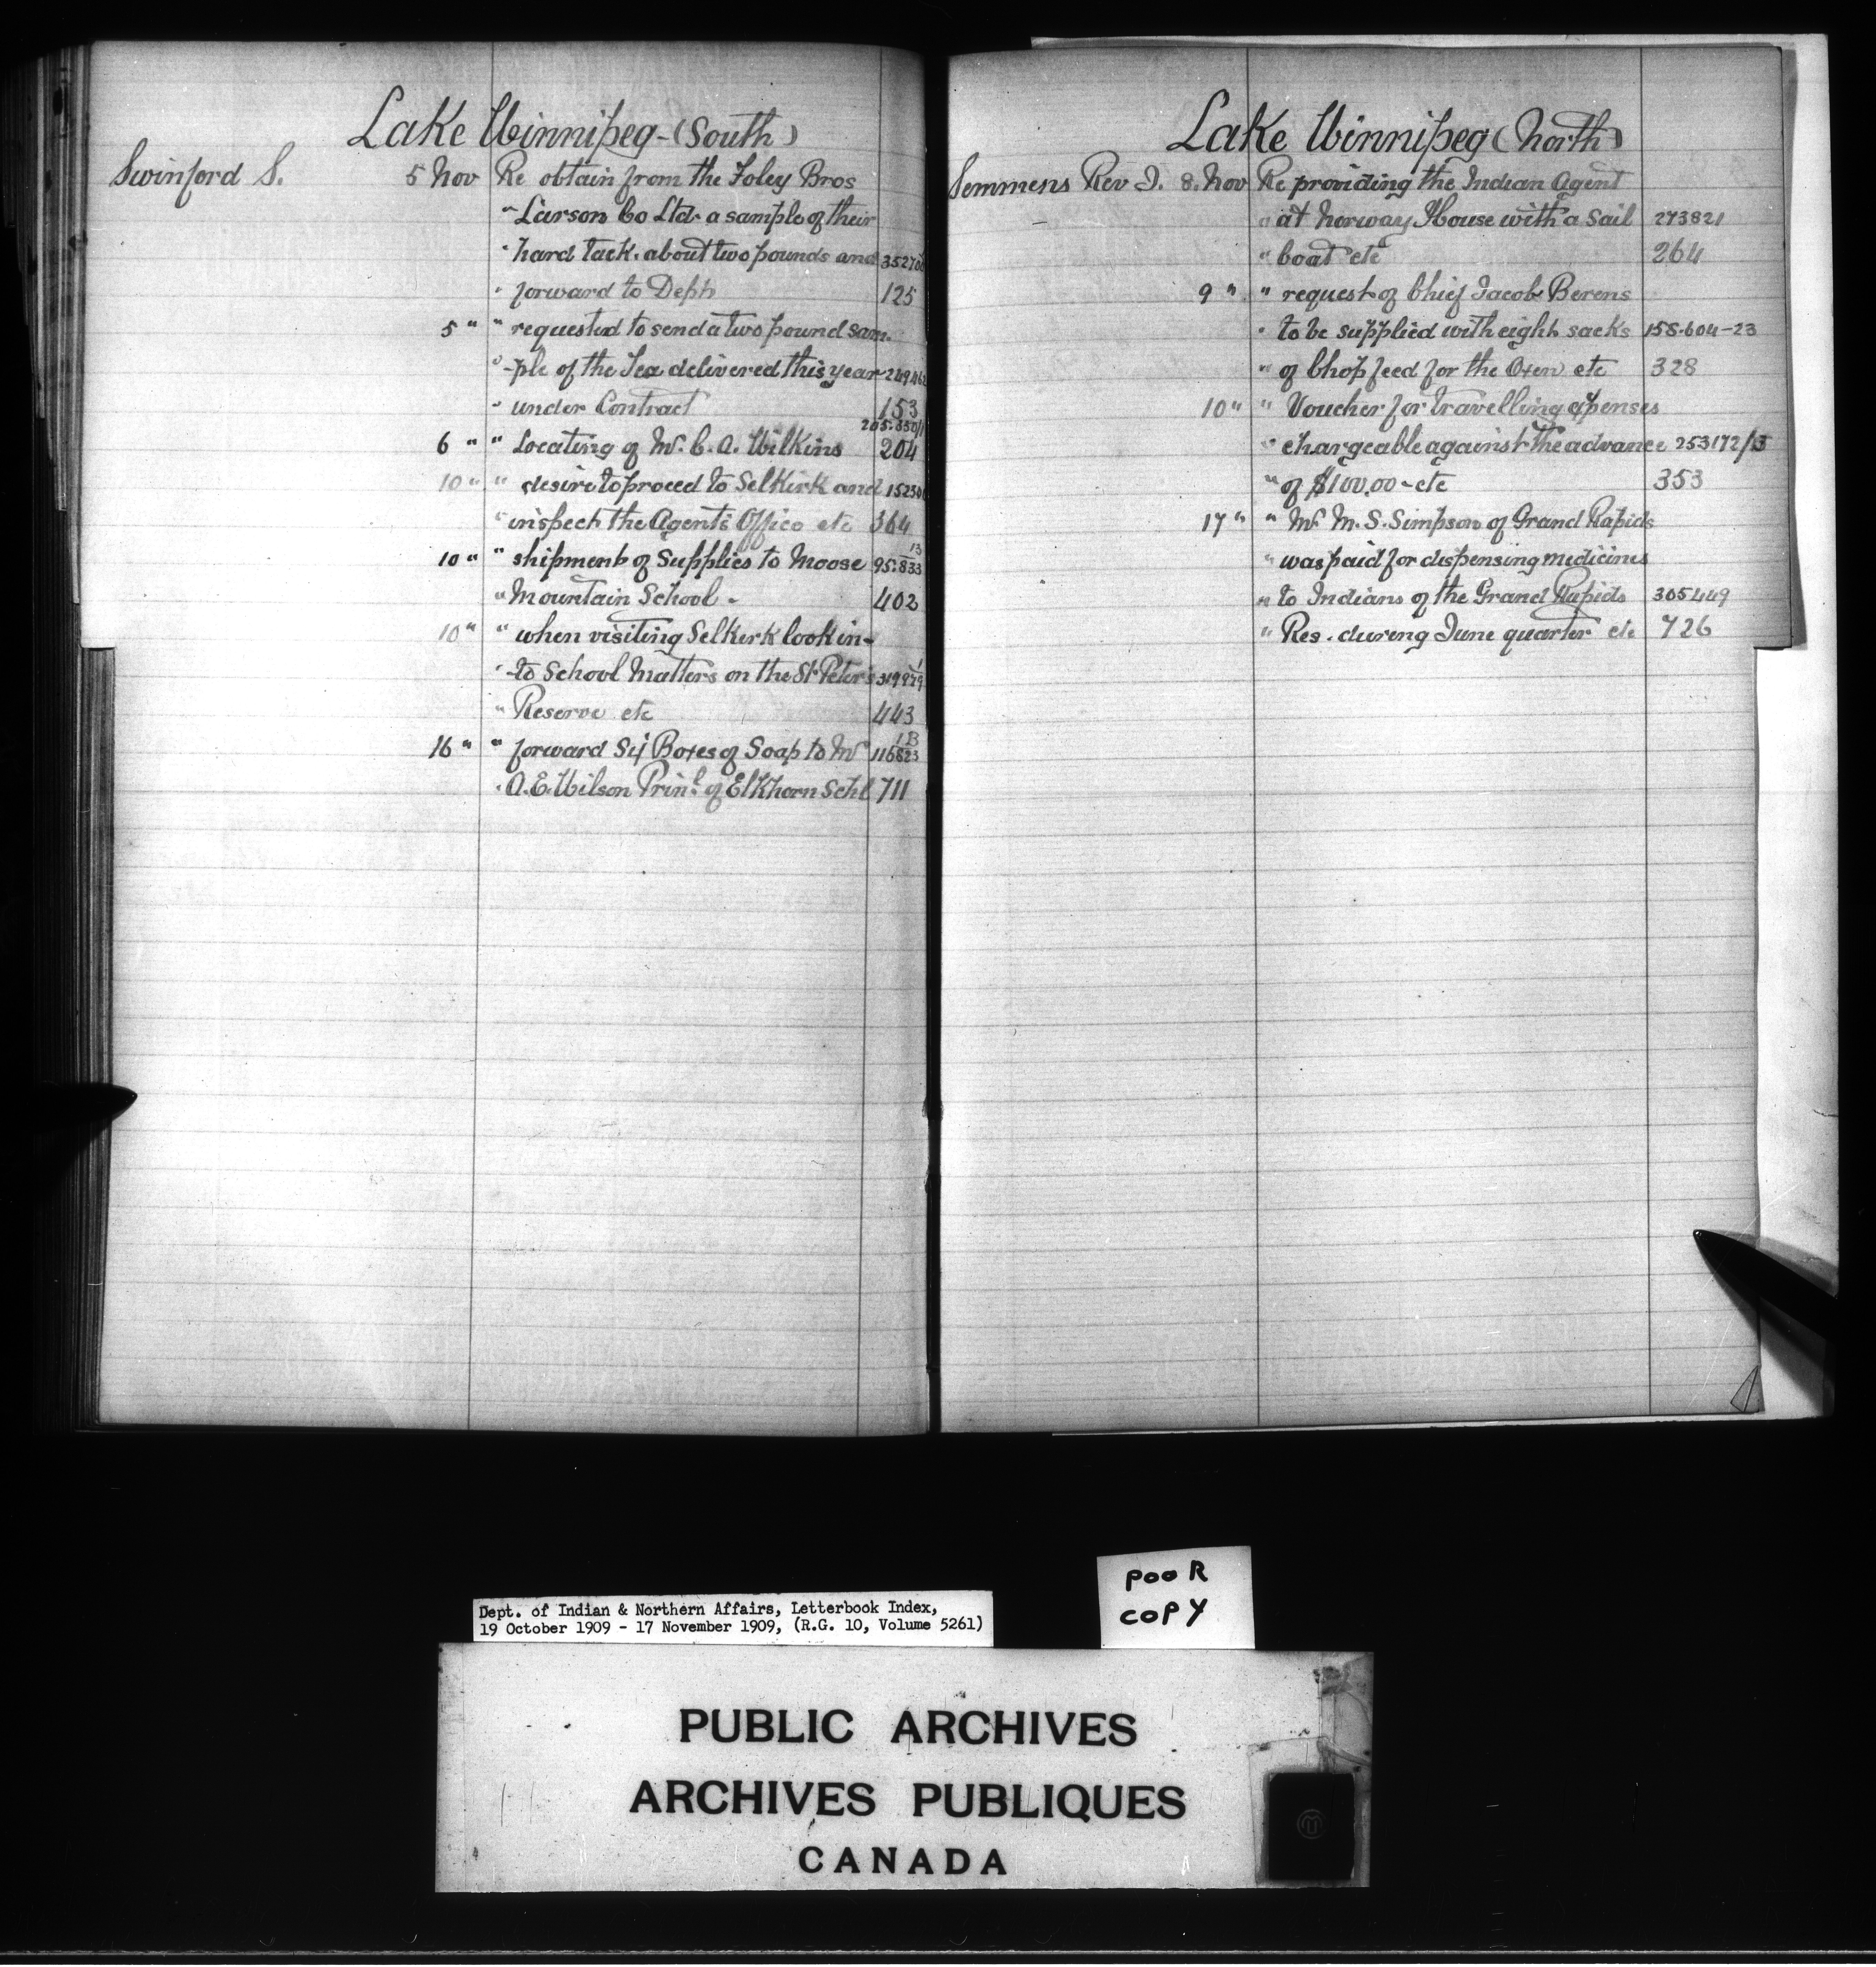 Lake Winnipeg-(South)
Swinford S. 5 Nov Re obtain from the Foley Bros
" Larson Co Ltd. a sample of their
" hard tack. about two pounds and
" forward to Dept 125
5 " " requested to send a two pound sam-
" -ple of the Tea delivered this year
" under Contract 153
6 " " Locating of Mr. C. A. Wilkins 204
10 " " desire to proceed to Selkirk and
" inspect the Agent's Office etc 364
10 " " shipment of Supplies to Moose 95.833 13
" Mountain School - 402
10 " " when visiting Selkirk look in-
" -to School Matters on the St Peter's
" Reserve etc 443
16 " " forward Six Boxes of Soap to Mr 116823 1B
" A.E. Wilson Prinl. of Elkhorn Schl 711
Lake Winnipeg (North)
Semmens Rev J. 8. Nov Re providing the Indian Agent
" at Norway House with a Sail 273821
" boat etc 264
9 " " request of Chief Jacob Berens
" to be supplied with eight sacks 158.604-23
" of Chop feed for the Oxen etc 328
10 " " Voucher for travelling expenses
" chargeable against the advance 253172/3
" of $100.00 - etc 353
17 " " Mr. M. S. Simpson of Grand Rapids
" was paid for dispensing medicines
" to Indians of the Grand Rapids 305449
" Res. during June quarter etc 726
POOR
COPY
Dept. of Indian & Northern Affairs, Letterbook Index,
19 October 1909 - 17 November 1909, (R.G. 10, Volume 5261)
PUBLIC ARCHIVES
ARCHIVES PUBLIQUES
CANADA